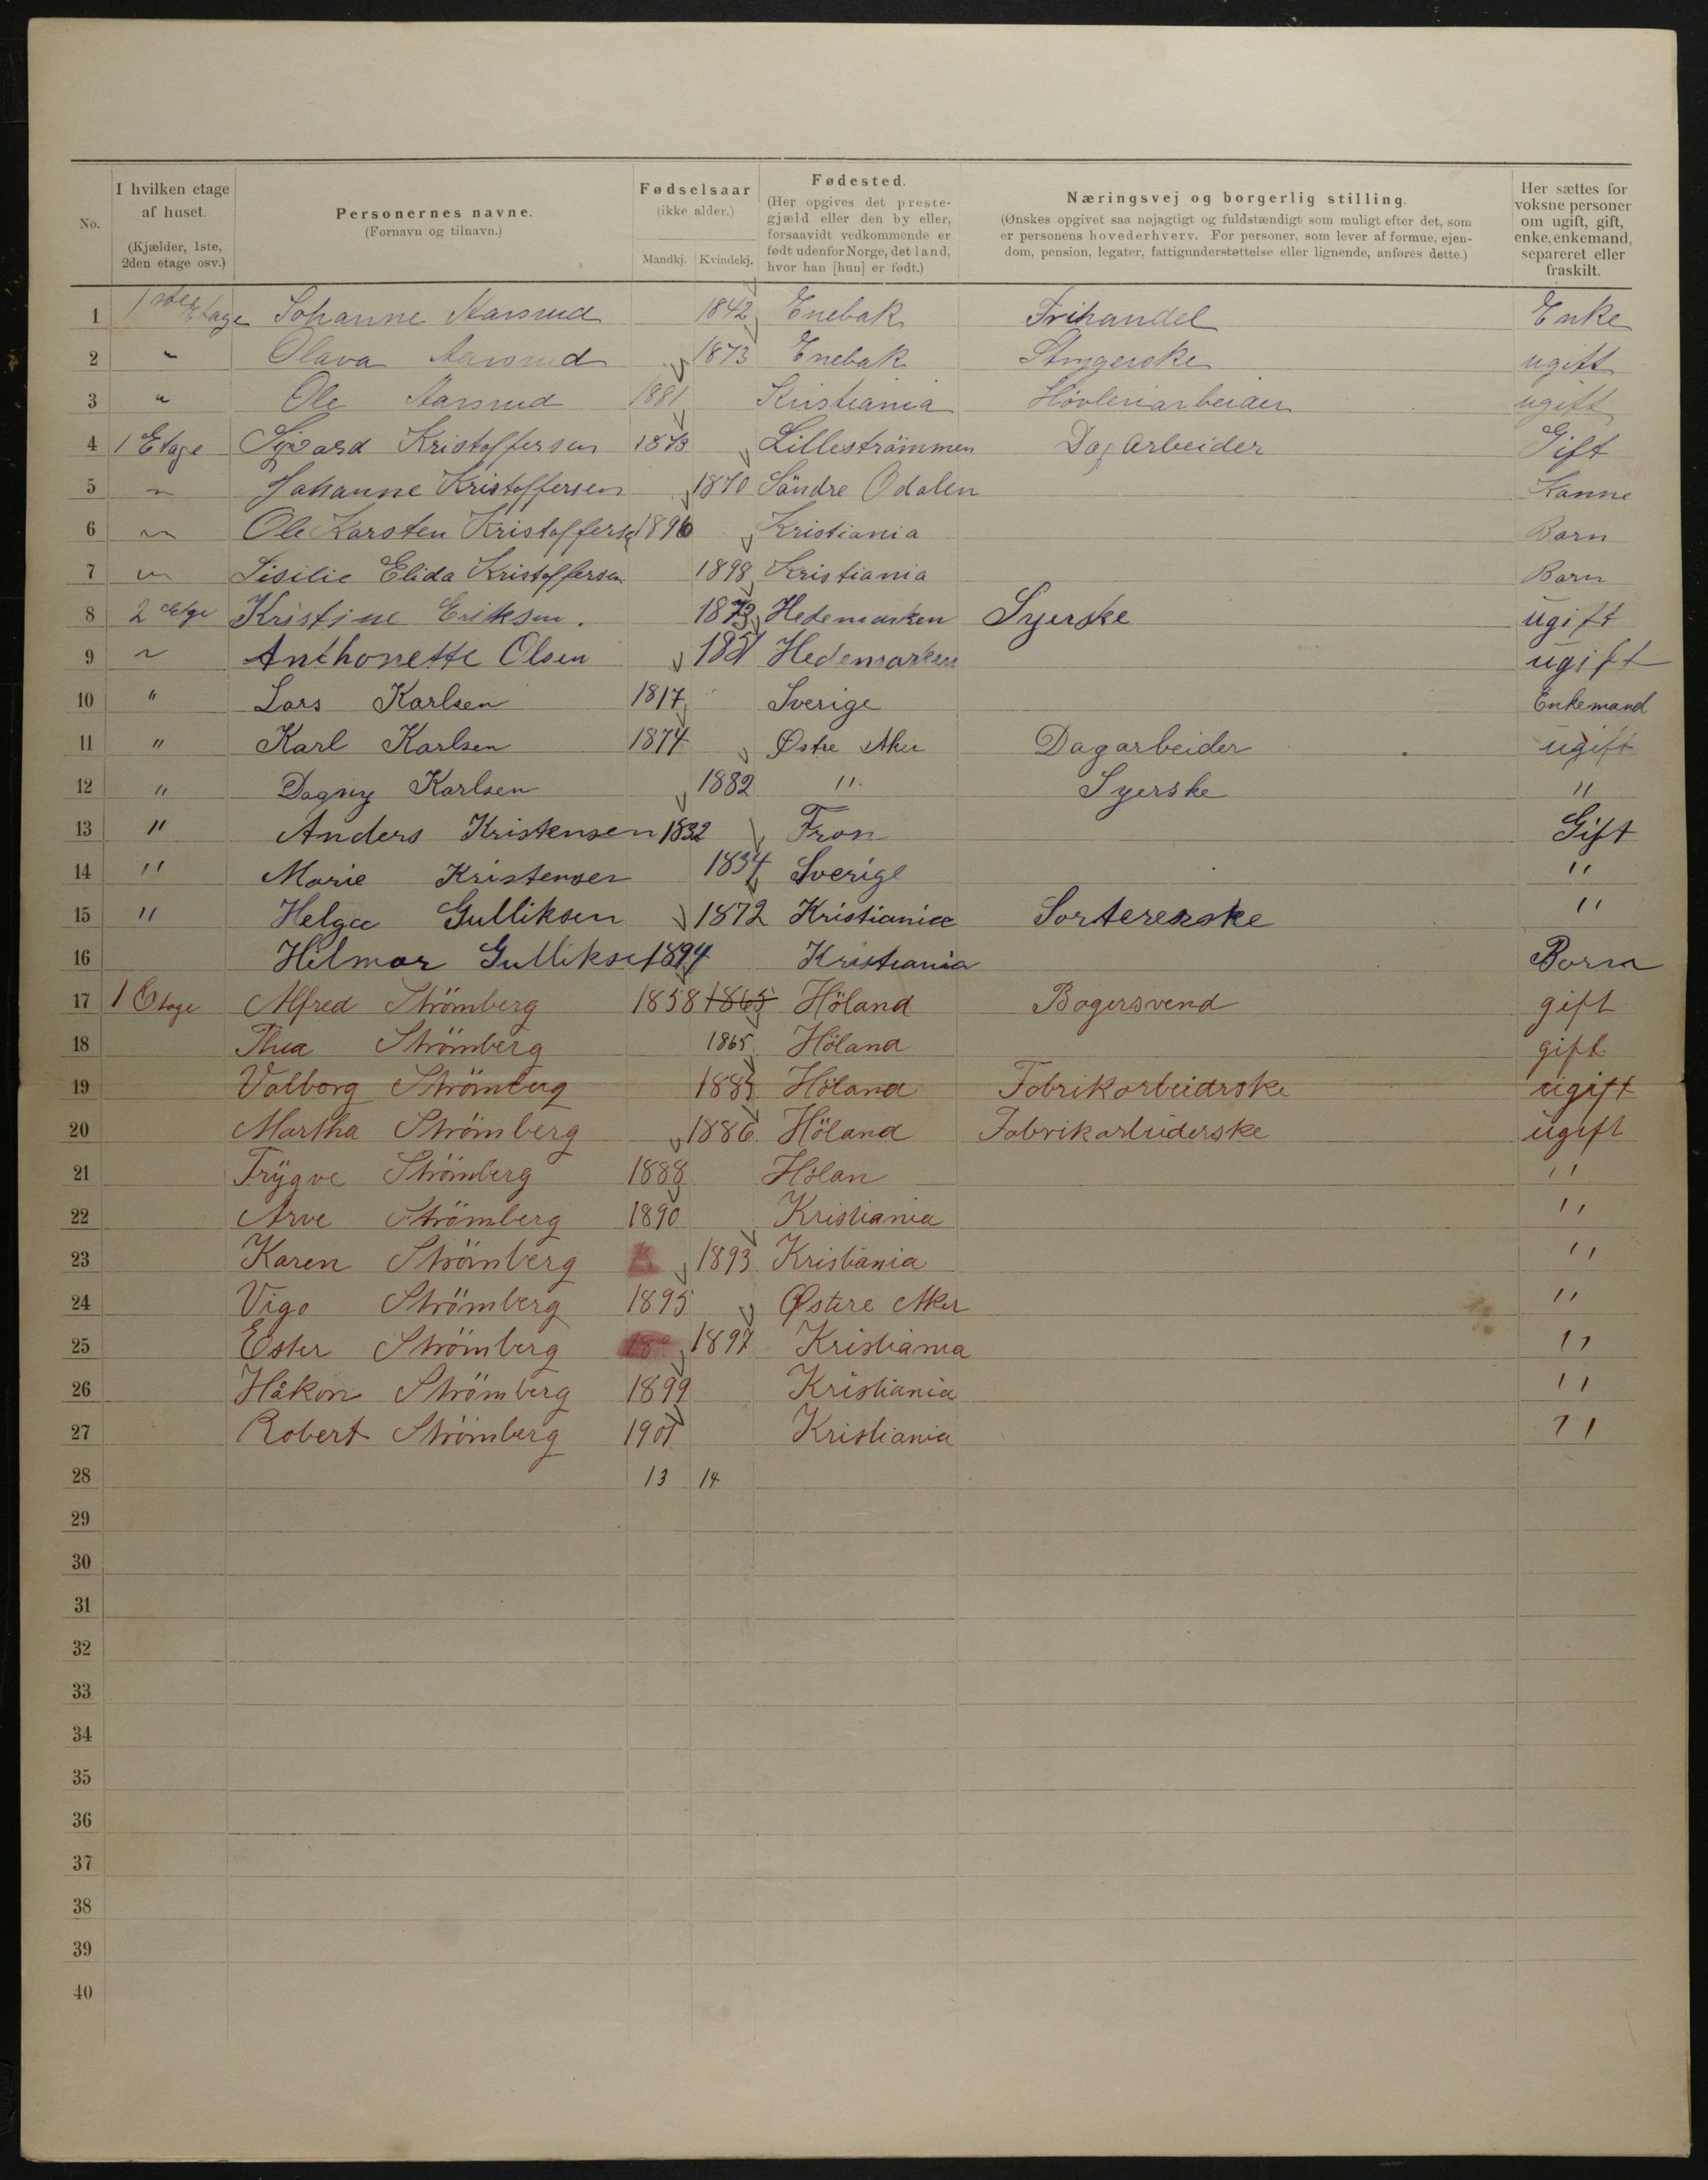 No.
I hvilken etage af huset. (Kjælder, 1ste, 2den etage osv.)
Personernes navne. (Fornavn og tilnavn.)
Fødselsaar (ikke alder.) Mandkj. Kvindekj.
Fødested. (Her opgives det prestegjæld eller den by eller, forsaavidt vedkommende er født udenfor Norge, det land, hvor han [hun] er født.)
Næringsvej og borgerlig stilling. (Ønskes opgivet saa nøjagtigt og fuldstændigt som muligt efter det, som er personens hovederhverv. For personer, som lever af formue, ejendom, pension, legater, fattigunderstøttelse eller lignende, anføres dette.)
Her sættes for voksne personer om ugift, gift, enke, enkemand, separeret eller fraskilt.
1 1ste Etage Johanne Aarsrud 1842 Enebak Frihandel Enke
2 " Olava Aarsrud 1873 Enebak Strygerske ugift
3 " Ole Aarsrud 1881 Kristiania Høvleriarbeider ugift
4 1 Etage Sivard Kristoffersen 1873 Lilleströmmen Dagarbeider Gift
5 " Johanne Kristoffersen 1870 Söndre Odalen Kanne
6 " Ole Karsten Kristoffersen 1896 Kristiania Barn
7 " Sisilie Elida Kristoffersen 1898 Kristiania Barn
8 2 Etge Kristine Eriksen. 1873 Hedemarken Syerske ugift
9 " Anthonette Olsen Hedemarken ugift
10 " Lars Karlsen 1817 Sverige Enkemand
11 " Karl Karlsen 1874 Østre Aker Dagarbeider ugift
12 " Dagny Karlsen 1882 " Syerske "
13 " Anders Kristensen 1832 Fron Gift
14 " Marie Kristensen 1834 Sverige "
15 " Helga Gulliksen 1872 Kristiania Sortererske "
16 Hilmar Gulliksen 1894 Kristiania Barn
17 1 Etage Alfred Strömberg 1858 1865 Höland Bagersvend gift
18 Thea Strömberg 1865 Höland gift
19 Valborg Strömberg 1885 Höland Fabrikarbeidrske ugift
20 Martha Strömberg 1886 Höland Fabrikarbeiderske ugift
21 Trygve Strömberg 1888 Hölan "
22 Arve Strömberg 1890 Kristiania "
23 Karen Strömberg 1893 Kristiania "
24 Vigo Strömberg 1895 Østere Aker "
25 Ester Strömberg 18 1897 Kristiania "
26 Håkon Strömberg 1899 Kristiania "
27 Robert Strömberg 1901 Kristiania "
28 13 14
29
30
31
32
33
34
35
36
37
38
39
40